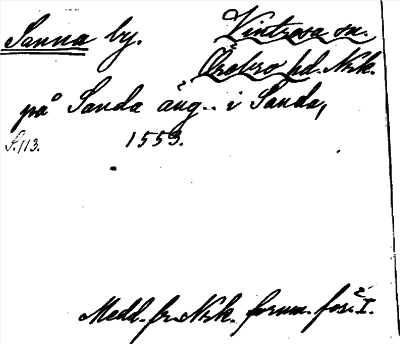 Sanna by. Vintrosa sn.
Örebro hd. Nrk.
på Sanda äng.. i Sanda,
S. 113. 1553.
Medd. fr. Nrk. fornm. för. I.